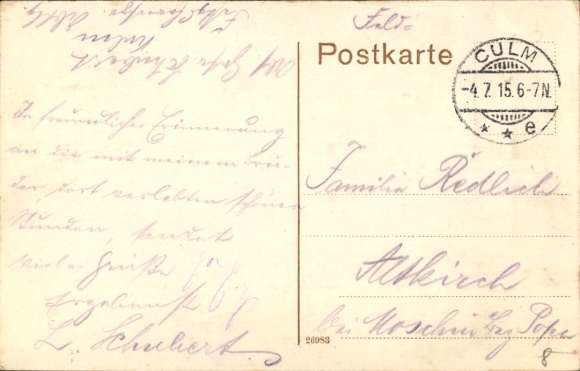 Feld=
Postkarte
CULM
-4.7.15.6-7N.
* * e
Schubert
Culm
In freundlicher Erinnerung
an die mit meinem Bru-
der dort verlebten schönen
Stunden, sendet
viele Grüße
L. Schubert.
Familie Redlich
Altkirch
bei Moschin Bez Posen
26983
8